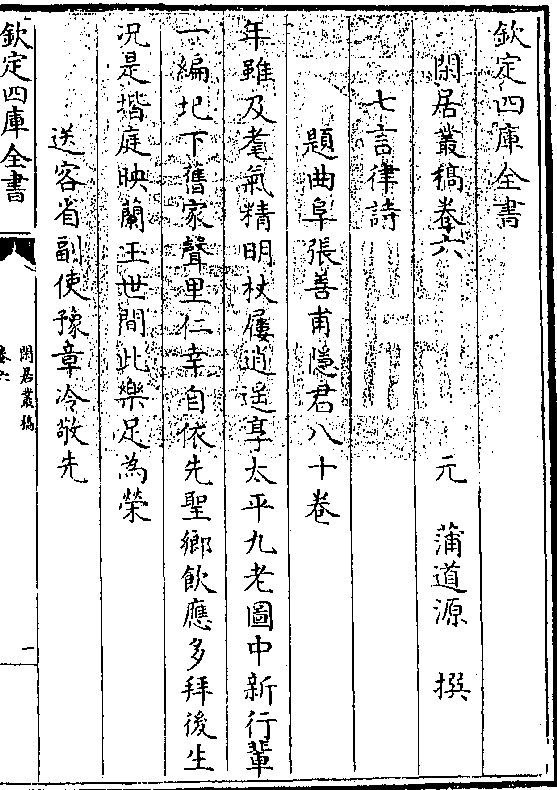 欽定四庫全書
閑居叢稿卷六
元 蒲道源 撰
七言律詩
題曲阜張善甫隱君八十卷
年雖及耄氣精明杖屨逍遥享太平九老圖中新行輩
一編圯下舊家聲里仁幸自依先聖鄉飲應多拜後生
况是揩庭映蘭玉世間此樂足為榮
送客省副使豫章冷敬先
欽定四庫全書
閑居叢稿
卷六
一